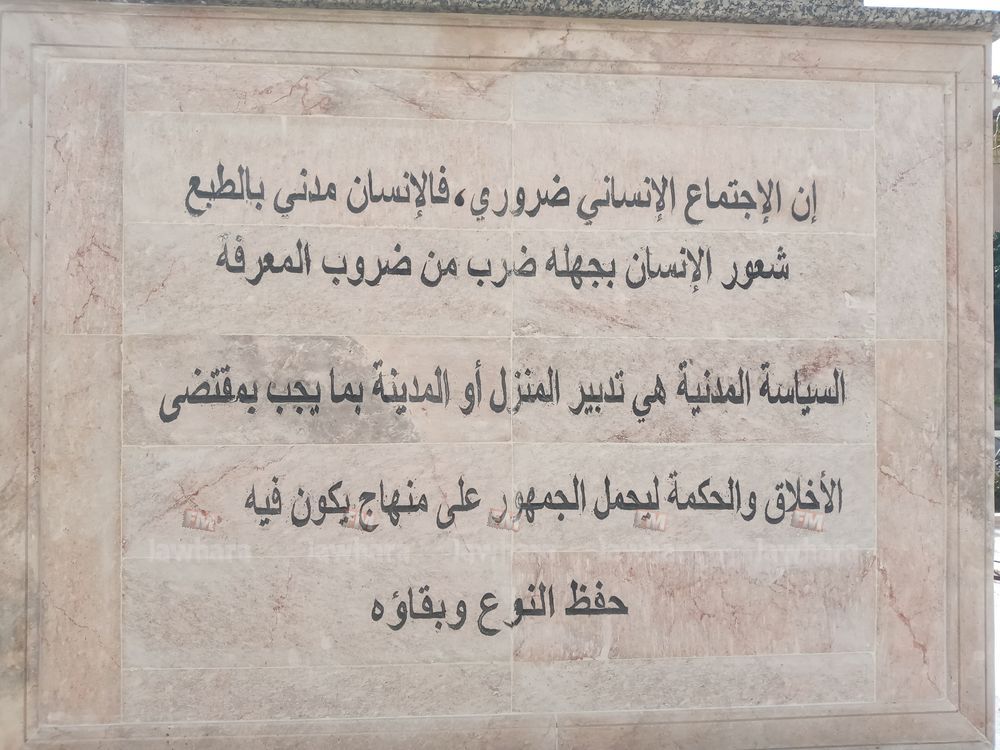 إن الإجتماع الإنساني ضروري، فالإنسان مدني بالطبع
شعور الإنسان بجهله ضرب من ضروب المعرفه
السياسة المدنية هي تدبير المنزل أو المدينة بما يجب بمقتضى
الأخلاق والحكمة ليحمل الجمهور على منهاج يكون فيه
FM FM FM FM FM
lawhara lawhara lawhara lawhara lawhara
حفظ النوع وبقاؤه